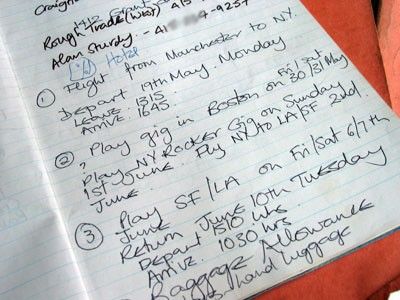 Craigni
Rough Trade (West) 415
Alan Sturdy - 41 7-9257
Hotel
① Flight from Manchester to NY.
19th May Monday
Depart
Leave: 1315
Arrive: 1645
② Play gig in Boston on Fri/Sat
30/31 May
Play NY Rocker Gig on Sunday
1st June. Fly NY to LA/SF 2nd
June.
③ Play SF/LA on Fri/Sat 6/7th
June
Return June 10th Tuesday
Depart 1510 hrs.
Arrive 1030 hrs
Baggage Allowance
hand luggage